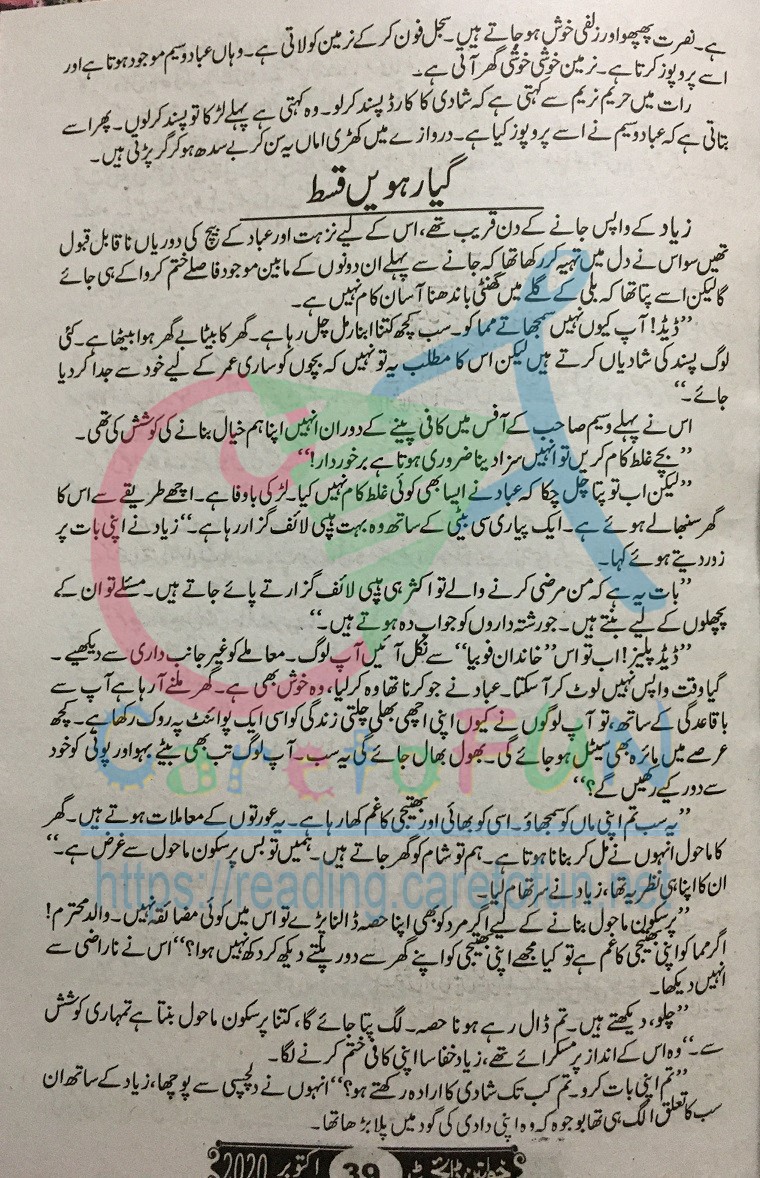 ہے۔ نصرت پھپھو اور زلفی خوش ہو جاتے ہیں۔ سجل فون کر کے نرمین کو لاتی ہے۔ وہاں عباد وسیم موجود ہوتا ہے اور
اسے پروپوز کرتا ہے۔ نرمین خوشی خوشی گھر آتی ہے۔
رات میں حریم نریم سے کہتی ہے کہ شادی کا کارڈ پسند کرلو۔ وہ کہتی ہے پہلے لڑکا تو پسند کرلوں۔ پھر اسے
بتاتی ہے کہ عباد وسیم نے اسے پروپوز کیا ہے۔ دروازے میں کھڑی اماں یہ سن کر بے سدھ ہو کر گر پڑتی ہیں۔
گیارہویں قسط
زیاد کے واپس جانے کے دن قریب تھے، اس کے لیے نزہت اور عباد کے بیچ کی دوریاں ناقابل قبول
تھیں سو اس نے دل میں تہیہ کر رکھا تھا کہ جانے سے پہلے ان دونوں کے مابین موجود فاصلے ختم کروا کے ہی جائے
گا لیکن اسے پتا تھا کہ بلی کے گلے میں گھنٹی باندھنا آسان کام نہیں ہے۔
”ڈیڈ! آپ کیوں نہیں سمجھاتے مما کو۔ سب کچھ کتنا ابنارمل چل رہا ہے۔ گھر کا بیٹا بے گھر ہوا بیٹھا ہے۔ کئی
لوگ پسند کی شادیاں کرتے ہیں لیکن اس کا مطلب یہ تو نہیں کہ بچوں کو ساری عمر کے لیے خود سے جدا کر دیا
جائے۔“
اس نے پہلے وسیم صاحب کے آفس میں کافی پینے کے دوران انہیں اپنا ہم خیال بنانے کی کوشش کی تھی۔
”بچے غلط کام کریں تو انہیں سزا دینا ضروری ہوتا ہے برخوردار!“
”لیکن اب تو پتا چل چکا کہ عباد نے ایسا بھی کوئی غلط کام نہیں کیا۔ لڑکی باوفا ہے۔ اچھے طریقے سے اس کا
گھر سنبھالے ہوئے ہے۔ ایک پیاری سی بیٹی کے ساتھ وہ بہت ہیپی لائف گزار رہا ہے۔“ زیاد نے اپنی بات پر
زور دیتے ہوئے کہا۔
”بات یہ ہے کہ من مرضی کرنے والے تو اکثر ہی ہیپی لائف گزارتے پائے جاتے ہیں۔ مسئلے تو ان کے
پچھلوں کے لیے بنتے ہیں۔ جو رشتہ داروں کو جواب دہ ہوتے ہیں۔“
”ڈیڈ پلیز! اب تو اس ”خاندان فوبیا“ سے نکل آئیں آپ لوگ۔ معاملے کو غیر جانب داری سے دیکھیے۔
گیا وقت واپس نہیں لوٹ کر آسکتا۔ عباد نے جو کرنا تھا وہ کر لیا، وہ خوش بھی ہے۔ گھر ملنے آرہا ہے آپ سے
باقاعدگی کے ساتھ، تو آپ لوگوں نے کیوں اپنی اچھی بھلی چلتی زندگی کو اسی ایک پوائنٹ پہ روک رکھا ہے۔ کچھ
عرصے میں مائرہ بھی سیٹل ہو جائے گی۔ بھول بھال جائے گی یہ سب۔ آپ لوگ تب بھی بیٹے بہو اور پوتی کو خود
سے دور کیے رکھیں گے؟“
”یہ سب تم اپنی ماں کو سمجھاؤ۔ اسی کو بھائی اور بھتیجی کا غم کھا رہا ہے۔ یہ عورتوں کے معاملات ہوتے ہیں۔ گھر
کا ماحول انہوں نے مل کر بنانا ہوتا ہے۔ ہم تو شام کو گھر جاتے ہیں۔ ہمیں تو بس پرسکون ماحول سے غرض ہے۔“
ان کا اپنا ہی نظریہ تھا، زیاد نے سر تھام لیا۔
”پرسکون ماحول بنانے کے لیے اگر مرد کو بھی اپنا حصہ ڈالنا پڑے تو اس میں کوئی مضائقہ نہیں۔ والد محترم!
اگر مما کو اپنی بھتیجی کا غم ہے تو کیا مجھے اپنی بھتیجی کو اپنے گھر سے دور پلتے دیکھ کر دکھ نہیں ہوا؟“ اس نے ناراضی سے
انہیں دیکھا۔
”چلو، دیکھتے ہیں۔ تم ڈال رہے ہو نا حصہ۔ لگ پتا جائے گا، کتنا پرسکون ماحول بنتا ہے تمہاری کوشش
سے۔“ وہ اس کے انداز پر مسکرائے تھے، زیاد خفا سا اپنی کافی ختم کرنے لگا۔
”تم اپنی بات کرو۔ تم کب تک شادی کا ارادہ رکھتے ہو؟“ انہوں نے دلچسپی سے پوچھا، زیاد کے ساتھ ان
سب کا تعلق الگ ہی تھا بوجوہ کہ وہ اپنی دادی کی گود میں پلا بڑھا تھا۔
CaretoFUN
https://reading.caretofun.net
خواتین ڈائجسٹ 39 اکتوبر 2020